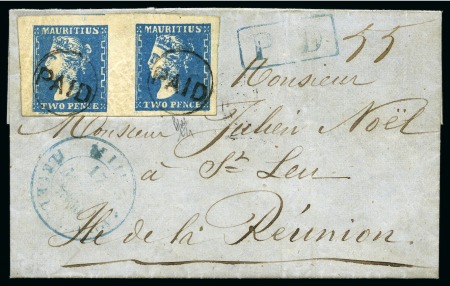 MAURITIUS MAURITIUS
PAID PAID
TWO PENCE TWO PENCE
P. D. 55
Monsieur
Monsieur Julien Noël
à St Leu
Ile de la Réunion